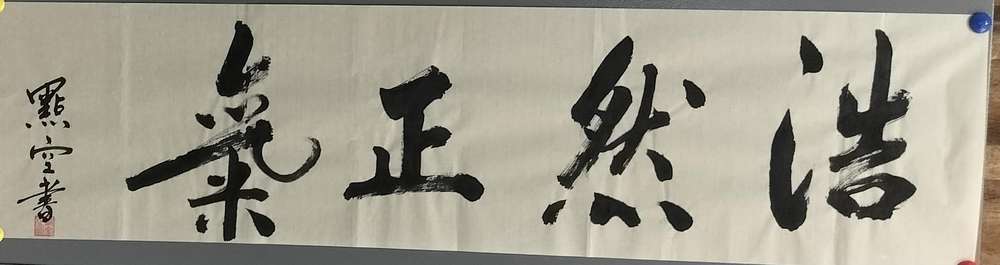 浩然正氣
點空書